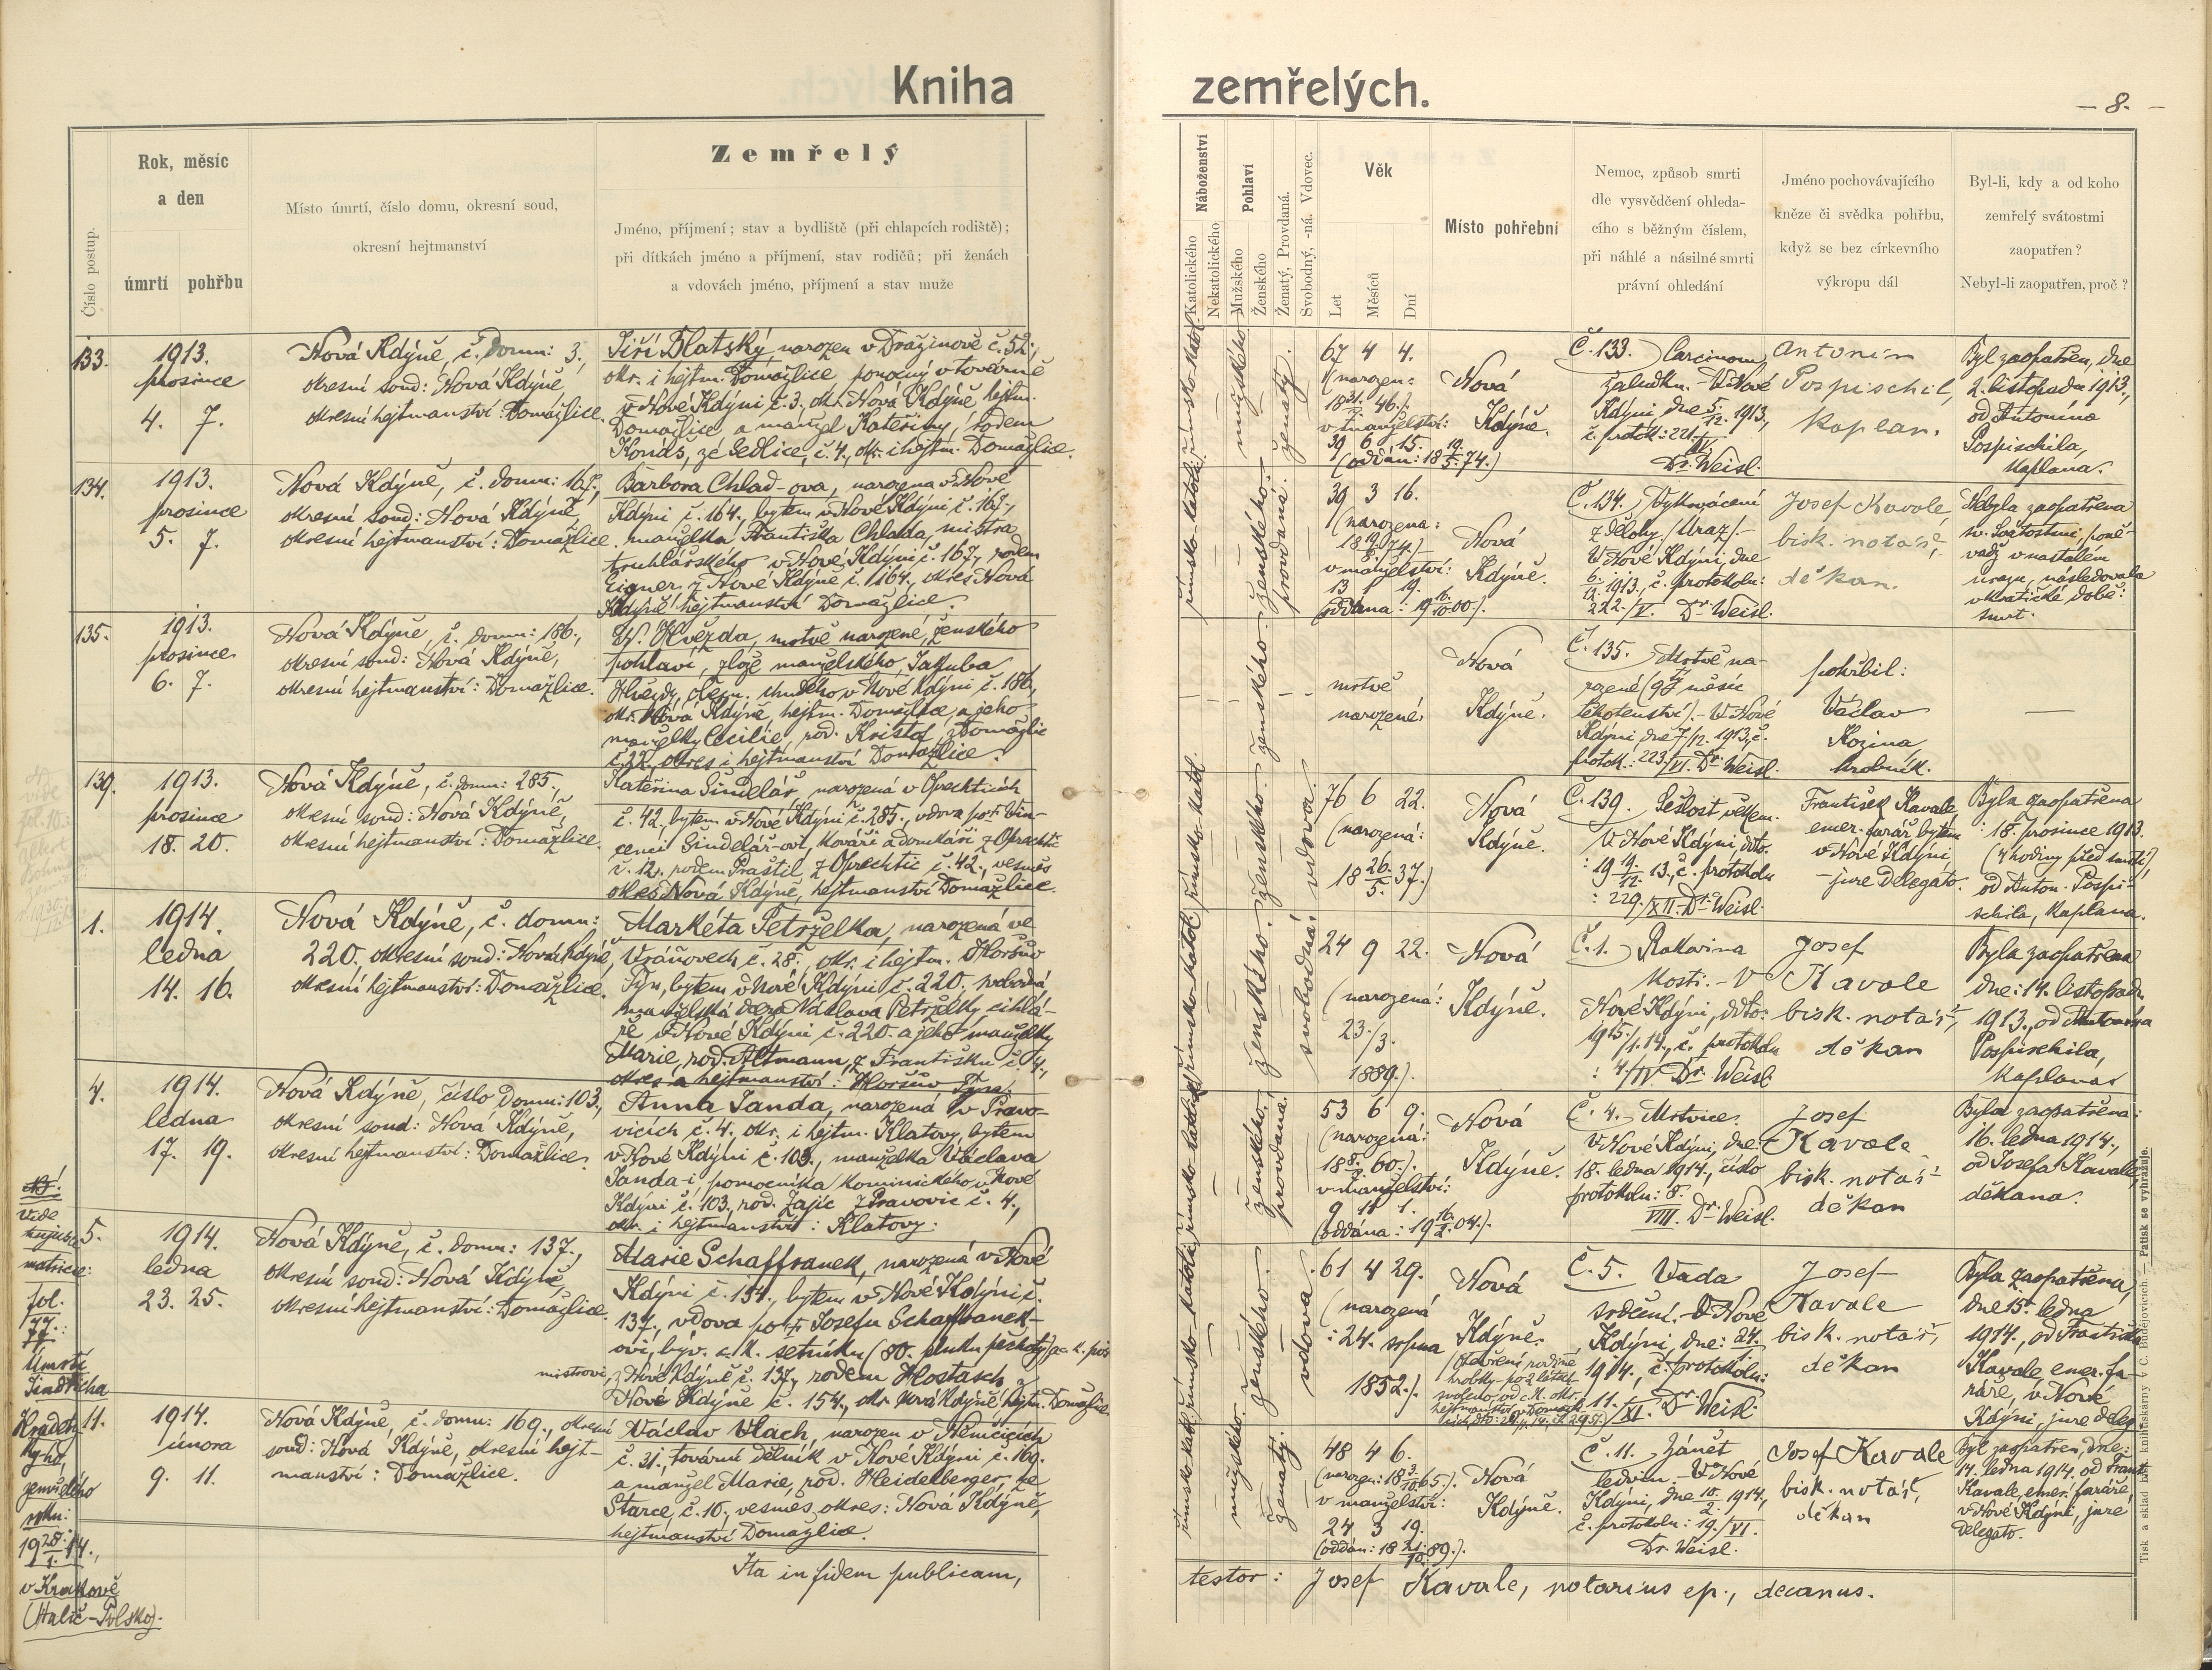 Kniha zemřelých.
— 8. —
Číslo postup.
Rok, měsíc
a den
úmrtí pohřbu
Místo úmrtí, číslo domu, okresní soud,
okresní hejtmanství
Zemřelý
Jméno, příjmení; stav a bydliště (při chlapcích rodiště);
při dítkách jméno a příjmení, stav rodičů; při ženách
a vdovách jméno, příjmení a stav muže
Náboženství
Katolického
Nekatolického
Pohlaví
Mužského
Ženského
Ženatý, Provdaná.
Svobodný, -ná. Vdovec.
Věk
Let
Měsíců
Dní
Místo pohřební
Nemoc, způsob smrti
dle vysvědčení ohleda-
cího s běžným číslem,
při náhlé a násilné smrti
právní ohledání
Jméno pochovávajícího
kněze či svědka pohřbu,
když se bez církevního
výkropu dál
Byl-li, kdy a od koho
zemřelý svátostmi
zaopatřen?
Nebyl-li zaopatřen, proč?
133.
1913.
prosince
4. 7.
Nová Kdýně, č. domu: 3.,
okresní soud: Nová Kdýně,
okresní hejtmanství: Domažlice.
Jiří Blatský, narozen v Dražinově č. 52.,
okr. i hejtm. Domažlice, pomocný v továrně
v Nové Kdýni č. 3., okr. Nová Kdýně, hejtm.
Domažlice a manžel Kateřiny, rodem
Konáš, ze Sedlice, č. 4., okr. i hejtm. Domažlice.
římsko-katol.
mužského
ženatý.
67 4 4.
(narozen:
v manželství:
39 6 15.
Nová
Kdýně.
Č. 133. Carcinom
žaludku. - V Nové
Kdýni, dne 5./12. 1913.,
č. protok.: 221./IV.
Dr. Weisl.
Antonín
Pospischil,
kaplan.
Byl zaopatřen, dne
2. listopadu 1913.,
od Antonína
Pospischila,
kaplana.
134.
1913.
prosince
5. 7.
Nová Kdýně, č. domu: 167.,
okresní soud: Nová Kdýně,
okresní hejtmanství: Domažlice.
Barbora Chlad-ova, narozena v Nové
Kdýni č. 164., bytem v Nové Kdýni č. 167.,
manželka Františka Chlada, mistra
truhlářského v Nové Kdýni č. 167., rodem
Eigner z Nové Kdýně č. 164., okres Nová
Kdýně, hejtmanství Domažlice.
ženského.
provdaná.
39 3 16.
(narozena:
v manželství:
13 1 19.
Nová
Kdýně.
Č. 134. Vykrvácení
z dělohy /Úraz/.-
V Nové Kdýni, dne
6./12. 1913., č. protokolu:
222./V. Dr. Weisl.
Josef Kavale
bisk. notář,
děkan.
Nebyla zaopatřena
sv. Svátostmi, poně-
vadž v nastalém
úrazu, následovala
v kratičké době:
smrt.
135.
1913.
prosince
6. 7.
Nová Kdýně, č. domu: 186.,
okresní soud: Nová Kdýně,
okresní hejtmanství: Domažlice.
N. Hvězda, mrtvě narozené, ženského
pohlaví, z lože manželského Jakuba
Hvězdy, v Nové Kdýni č. 186.,
okr. Nová Kdýně, hejtm. Domažlice, a jeho
manželky Cecilie, rod. Kristof, z Domažlic
č. 22., okres i hejtmanství Domažlice.
ženského.
mrtvě
narozené.
Nová
Kdýně.
Č. 135. Mrtvě na-
rozené (9tý měsíc
těhotenství). - V Nové
Kdýni dne 7./12. 1913., č.
protok.: 223./VI. Dr. Weisl.
pohřbil:
Václav
Kozina
hrobník.
—
139.
1913.
prosince
18. 20.
Nová Kdýně, č. domu: 285.,
okresní soud: Nová Kdýně,
okresní hejtmanství: Domažlice.
Kateřina Šindelář, narozená v Oprechticích
č. 42., bytem v Nové Kdýni č. 285., vdova po † Vin-
cenci Šindelář-ovi, kováři a domkáři z Oprechtic
č. 12., rodem Praštil, z Oprechtic č. 42., vesměs
okres Nová Kdýně, hejtmanství Domažlice.
římsko-katol.
ženského.
vdova.
76 6 22.
(narozená:
18 26./5. 37.)
Nová
Kdýně.
Č. 139. Sešlost věkem.
V Nové Kdýni, dto.
: 19 19./12. 13., č. protokolu
: 229./XII. Dr. Weisl.
František Kavale
emer. farář, bytem
v Nové Kdýni,
-jure delegato.
Byla zaopatřena
: 18. prosince 1913.
(4 hodiny před smrtí),
od Anton. Pospi-
schila, kaplana.
1.
1914.
ledna
14. 16.
Nová Kdýně, č. domu:
220., okresní soud: Nová Kdýně,
okresní hejtmanství: Domažlice.
Markéta Petrželka, narozená ve
č. 28., okr. i hejtm. Horšův
Týn, bytem v Nové Kdýni č. 220., svobodná,
manželská dcera Václava Petrželky, cihlá-
ře v Nové Kdýni č. 220. a jeho manželky
Marie, rod. Altmann, z Františku č. 4.,
okres a hejtmanství: Horšův Týn.
římsko-katol.
ženského.
svobodná.
24 9 22.
(narozená:
23./3.
1889.).
Nová
Kdýně.
Č. 1.
kosti. - V
Nové Kdýni, dto.
1915./1. 14., č. protokolu
: 4./IV. Dr. Weisl.
Josef
Kavale
bisk. notář,
děkan
Byla zaopatřena
dne: 14. listopadu
1913., od Antonína
Pospischila,
kaplana.
4.
1914.
ledna
17. 19.
Nová Kdýně, číslo domu: 103.,
okresní soud: Nová Kdýně,
okresní hejtmanství: Domažlice.
Anna Janda, narozená v Pravo-
vicích č. 4., okr. i hejtm. Klatovy, bytem
v Nové Kdýni č. 103., manželka Václava
Janda-i pomocníka kominického v Nové
Kdýni č. 103., rod. Zajíc z Pravovic č. 4.,
okr. i hejtmanství: Klatovy.
ženského.
provdaná.
53 6 9.
(narozená:
v manželství:
9 11 1.
Nová
Kdýně.
Č. 4. Mrtvice.
V Nové Kdýni, dne
18. ledna 1914., číslo
protokolu: 8.
VIII. Dr. Weisl.
Josef
Kavale
bisk. notář
děkan
Byla zaopatřena:
16. ledna 1914.,
od Josefa Kavale,
děkana.
5.
1914.
ledna
23. 25.
Nová Kdýně, č. domu: 137.,
okresní soud: Nová Kdýně,
okresní hejtmanství: Domažlice.
Marie Schaffranek, narozená v Nové
Kdýni č. 154., bytem v Nové Kdýni č.
137., vdova po † Josefu Schaffranek-
ovi, býv. c. k. setníku (80. pluku pěchoty)
mistrovi, z Nové Kdýně č. 137., rodem Hostasch z
Nové Kdýně č. 154., okr. Nová Kdýně, hejtm. Domažlice.
ženského.
vdova.
61 4 29.
(narozená
: 24. srpna
1852.).
Nová
Kdýně.
Č. 5. Vada
srdeční. V Nové
Kdýni, dne: 24.
1914., č. protokolu:
11./XI. Dr. Weisl.
Josef
Kavale
bisk. notář,
děkan
Byla zaopatřena,
dne 15. ledna
1914., od Františka
Kavale, emer. fa-
ráře, v Nové
Kdýni, jure deleg.
11.
1914.
února
9. 11.
Nová Kdýně, č. domu: 169., okresní
soud: Nová Kdýně, okresní hejt-
manství: Domažlice.
Václav Vlach, narozen v Němčicích
č. 31., tovární dělník v Nové Kdýni č. 169.
a manžel Marie, rod. Heidelberger, ze
Starce, č. 10., vesměs okres: Nová Kdýně,
hejtmanství Domažlice.
mužského.
ženatý.
48 4 6.
(narozen: 18 3./10. 65.).
v manželství:
24 3 19.
(oddán: 18 21./10. 89.).
Nová
Kdýně.
Č. 11. Zánět
ledvin. V Nové
Kdýni, dne 10./2. 1914.,
č. protokolu: 19./VI.
Dr. Weisl.
Josef Kavale
bisk. notář,
děkan
Byl zaopatřen, dne:
14. ledna 1914. od Frant.
Kavale, emer. faráře,
v Nové Kdýni, jure
delegato.
NB.
Vide
matrice:
fol.
77.:
Úmrtí
Jindřicha
zemřelého
roku:
19 28./1. 14.,
v Krakově
(Halič-Polsko).
Ita in fidem publicam,
testor: Josef Kavale, notarius ep., decanus.
Tisk a sklad knihtiskárny v Č. Budějovicích. — Patisk se vyhražuje.